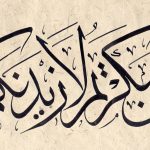 شكرتم لأزيدنكم